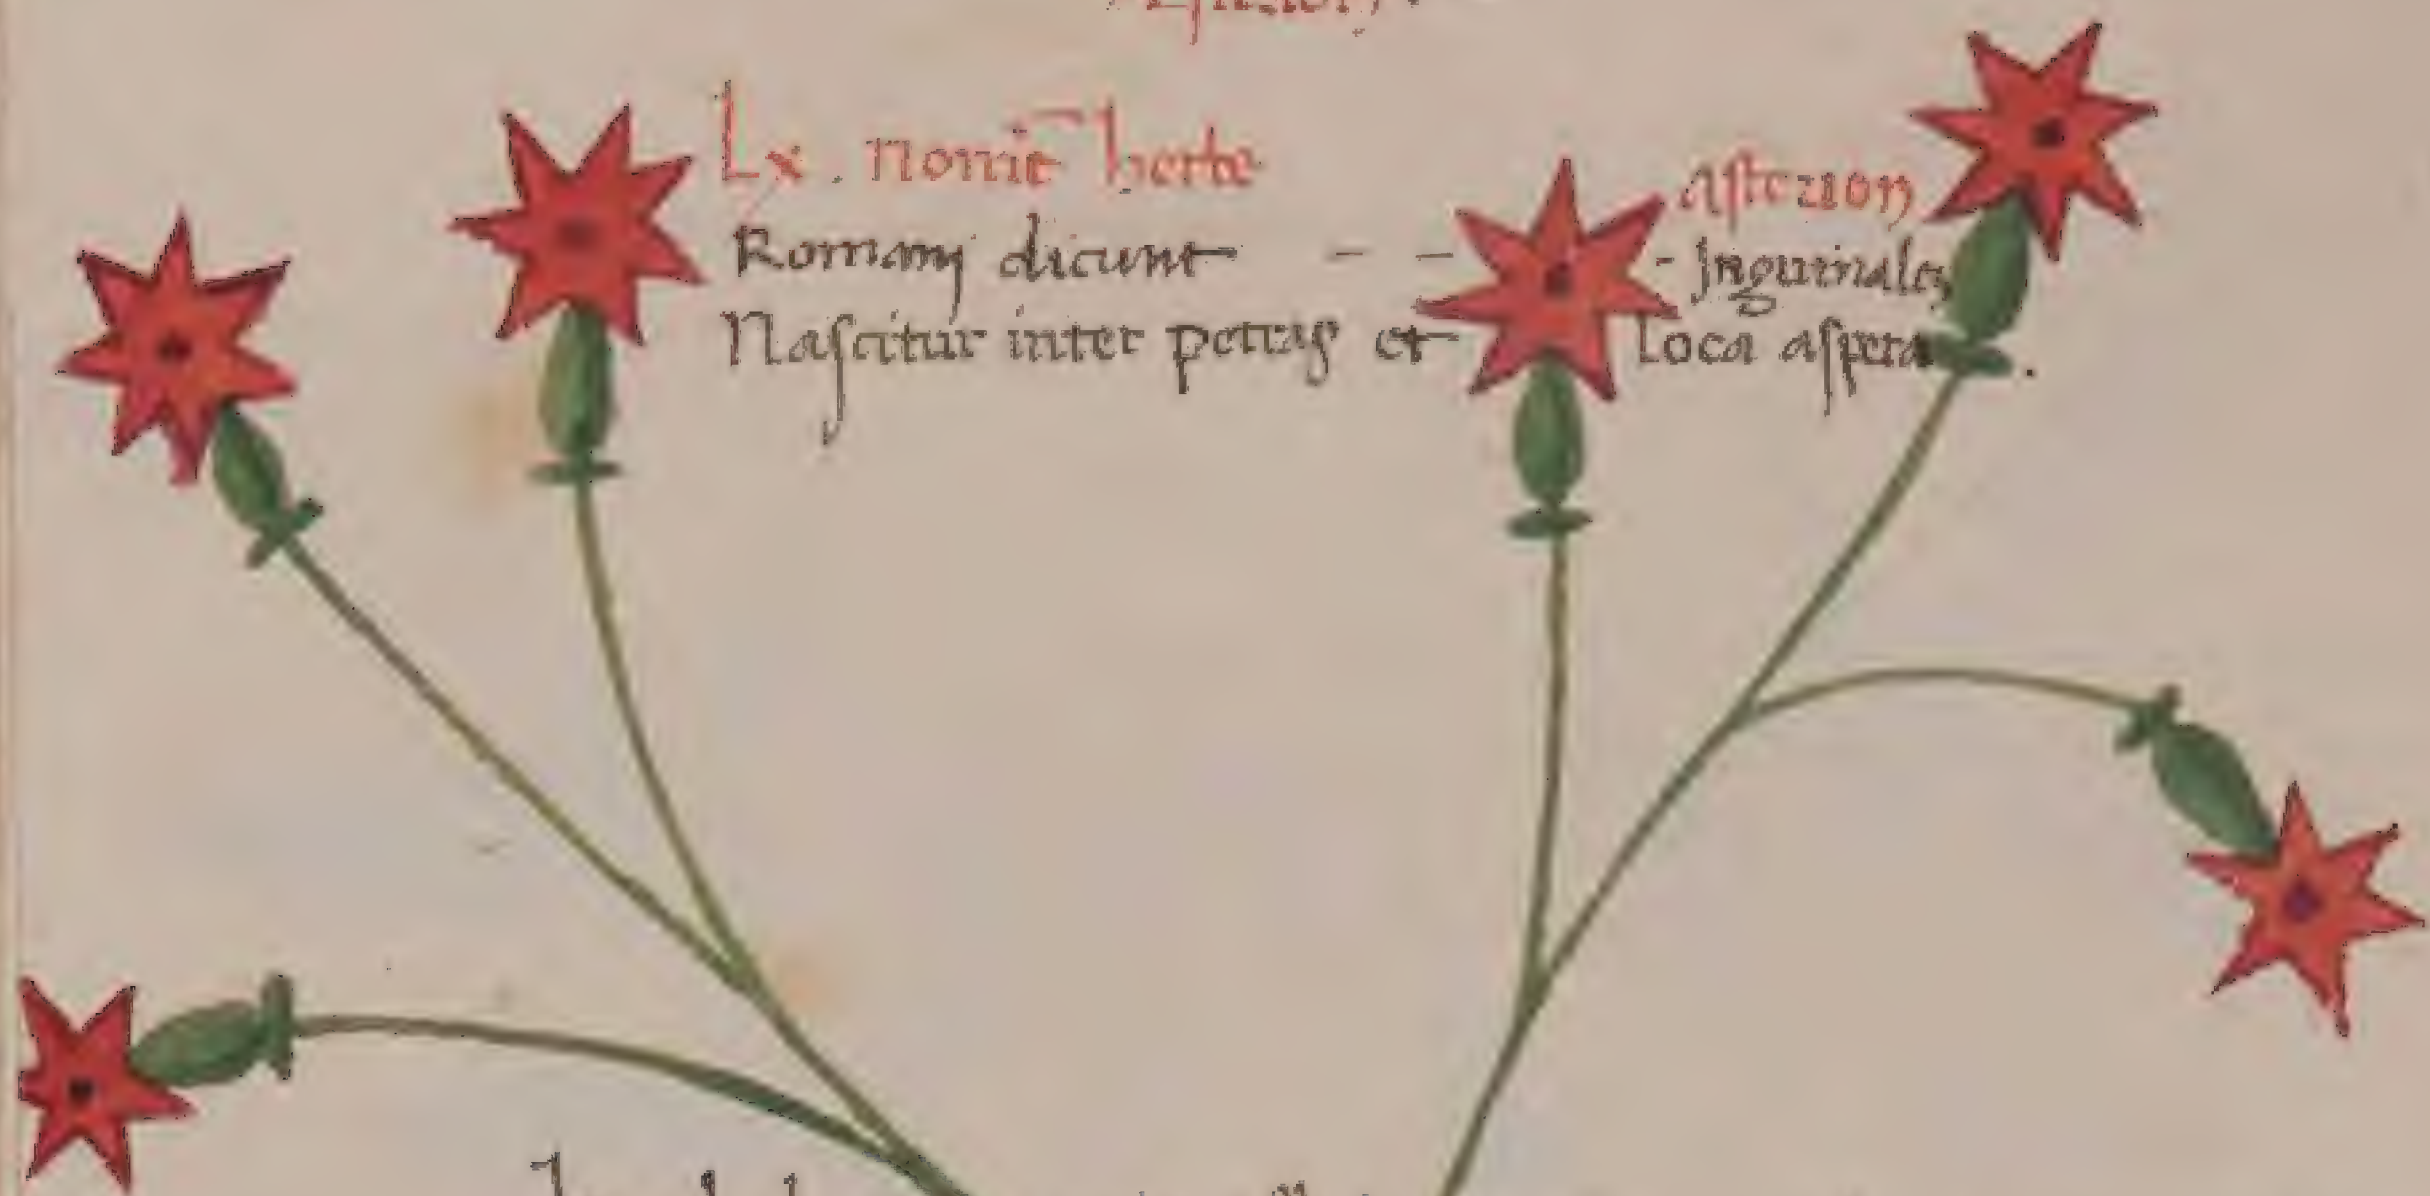 Lx . nomē herbe asterion
Romanj dicunt - - - Jnguinales
Nascitur inter petras et loca aspera .